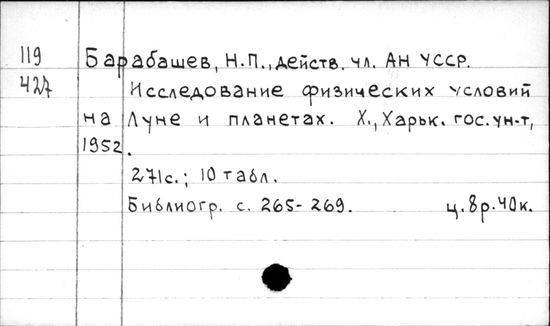 119 Барабашев, Н.П., действ. чл. АН УССР.
427 Исследование физических условий
на Луне и планетах. Х., Харьк. гос. ун-т,
1952.
271с.; 10 табл.
Библиогр. с. 265-269. ц. 8р.40к.